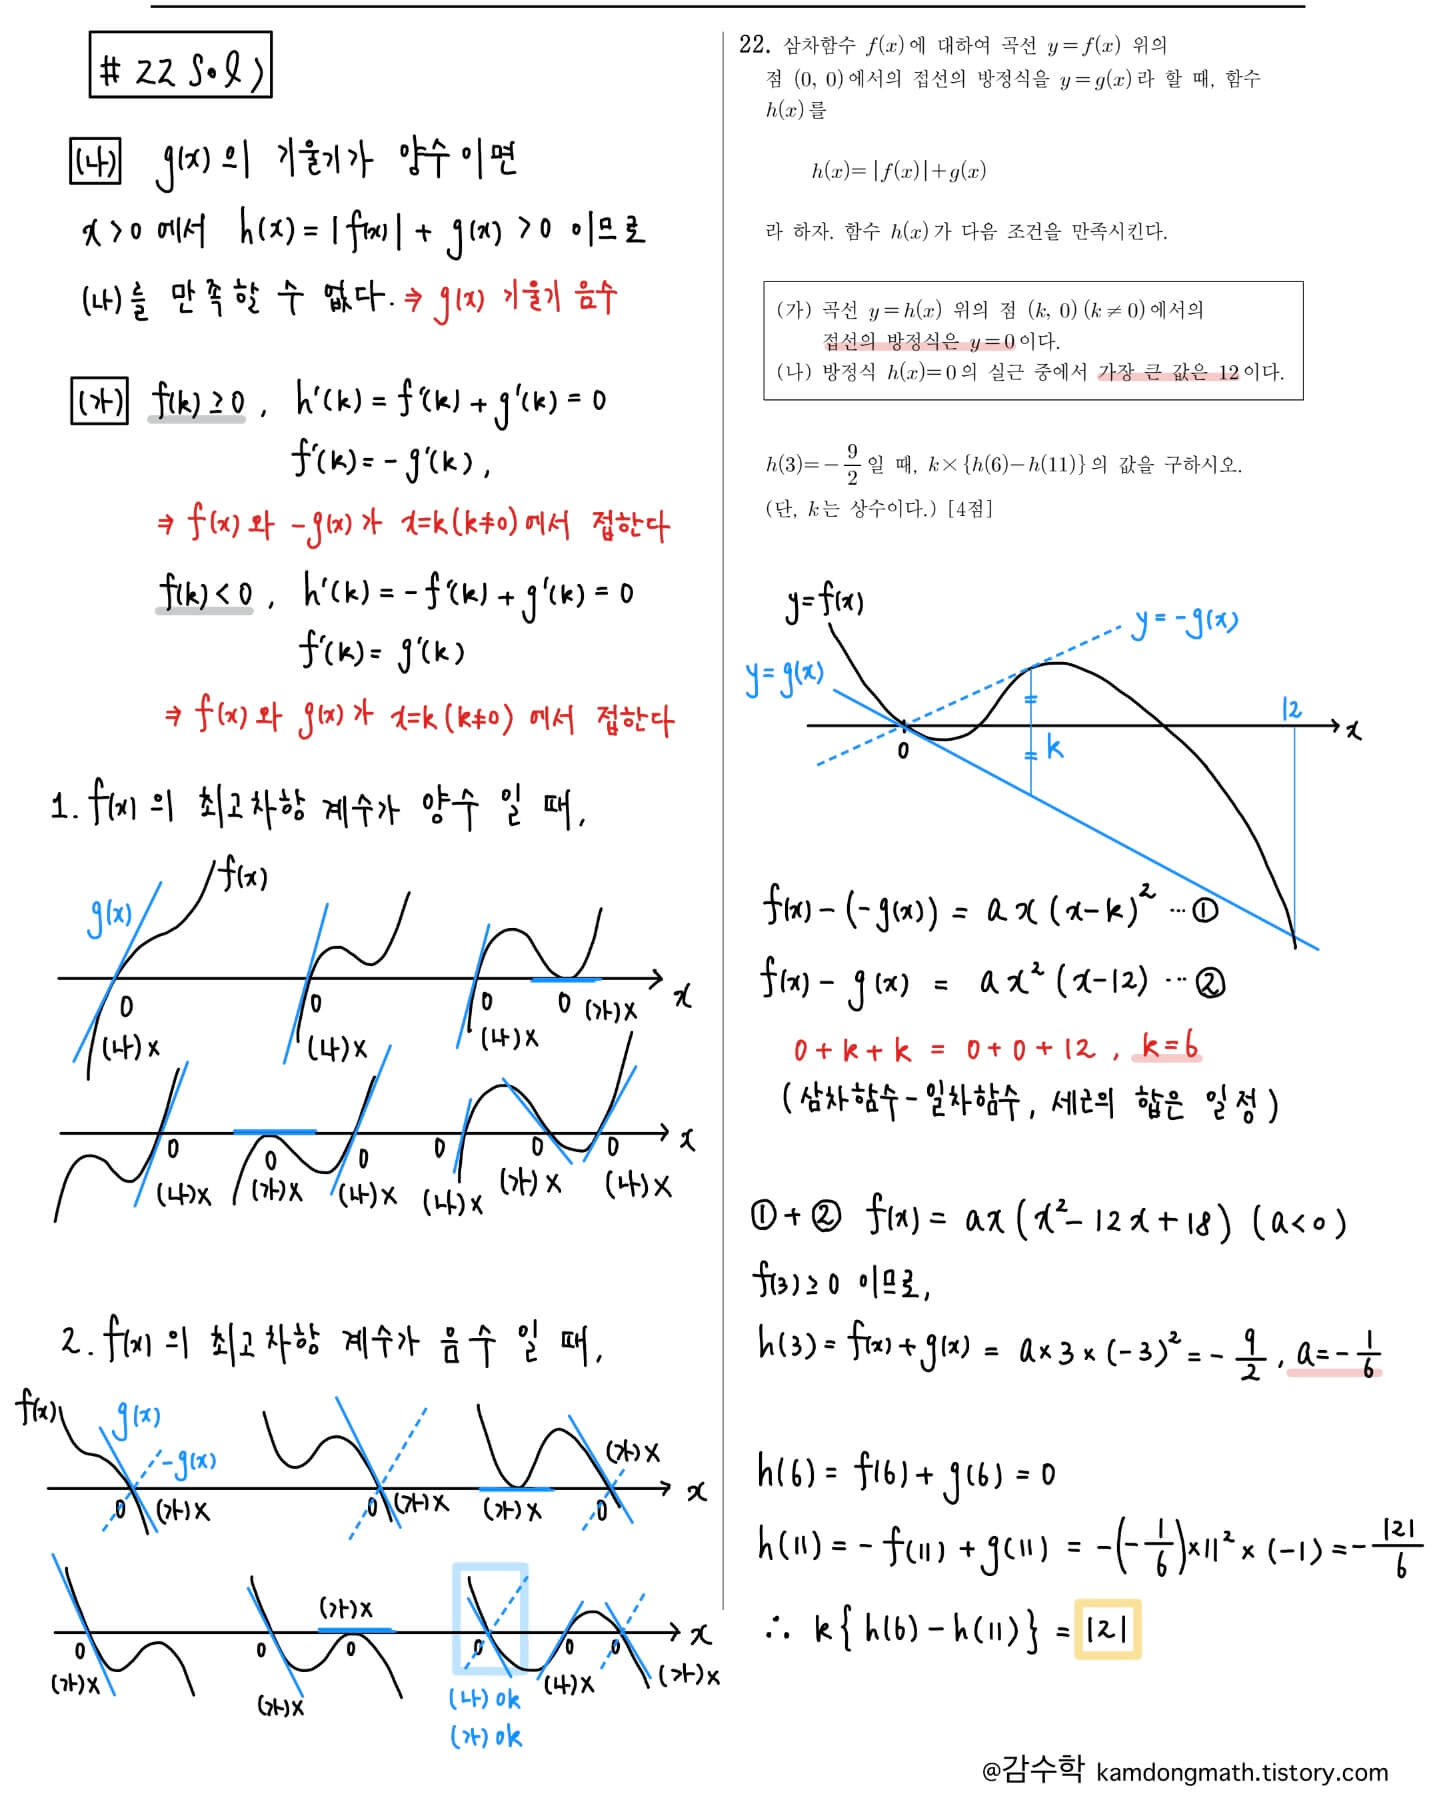 # 22 Sol)
(나) g(x)의 기울기가 양수이면
x>0에서 h(x)=|f(x)|+g(x)>0 이므로
(나)를 만족할 수 없다. ⇒ g(x) 기울기 음수
(가) f(k)≥0, h'(k)=f'(k)+g'(k)=0
f'(k)=-g'(k),
⇒ f(x)와 -g(x)가 x=k(k≠0)에서 접한다
f(k)<0, h'(k)=-f'(k)+g'(k)=0
f'(k)=g'(k)
⇒ f(x)와 g(x)가 x=k(k≠0)에서 접한다
1. f(x)의 최고차항 계수가 양수 일 때,
g(x) f(x)
0 0 0 0 (가)x x
(나)x (나)x (나)x
0 0 0 0 0 0 x
(나)x (가)x (나)x (나)x (가)x (나)x
2. f(x)의 최고차항 계수가 음수 일 때,
f(x) g(x) -g(x) (가)x
0 (가)x 0 (가)x (가)x 0 x
(가)x
0 0 0 0 0 0 x
(가)x (가)x (나)x (가)x
(나)ok
(가)ok
22. 삼차함수 f(x)에 대하여 곡선 y=f(x) 위의
점 (0, 0)에서의 접선의 방정식을 y=g(x)라 할 때, 함수
h(x)를
h(x)=|f(x)|+g(x)
라 하자. 함수 h(x)가 다음 조건을 만족시킨다.
(가) 곡선 y=h(x) 위의 점 (k, 0)(k≠0)에서의
접선의 방정식은 y=0이다.
(나) 방정식 h(x)=0의 실근 중에서 가장 큰 값은 12이다.
h(3)=-9/2일 때, k×{h(6)-h(11)}의 값을 구하시오.
(단, k는 상수이다.) [4점]
y=f(x)
y=-g(x)
y=g(x)
12
0 k x
f(x)-(-g(x)) = ax(x-k)² ⋯①
f(x)-g(x) = ax²(x-12) ⋯②
0+k+k = 0+0+12, k=6
(삼차함수-일차함수, 세근의 합은 일정)
①+② f(x)=ax(x²-12x+18) (a<0)
f(3)≥0 이므로,
h(3)=f(x)+g(x)=a×3×(-3)²=-9/2, a=-1/6
h(6)=f(6)+g(6)=0
h(11)=-f(11)+g(11)=-(-1/6)×11²×(-1)=-121/6
∴ k{h(6)-h(11)}=121
@감수학 kamdongmath.tistory.com